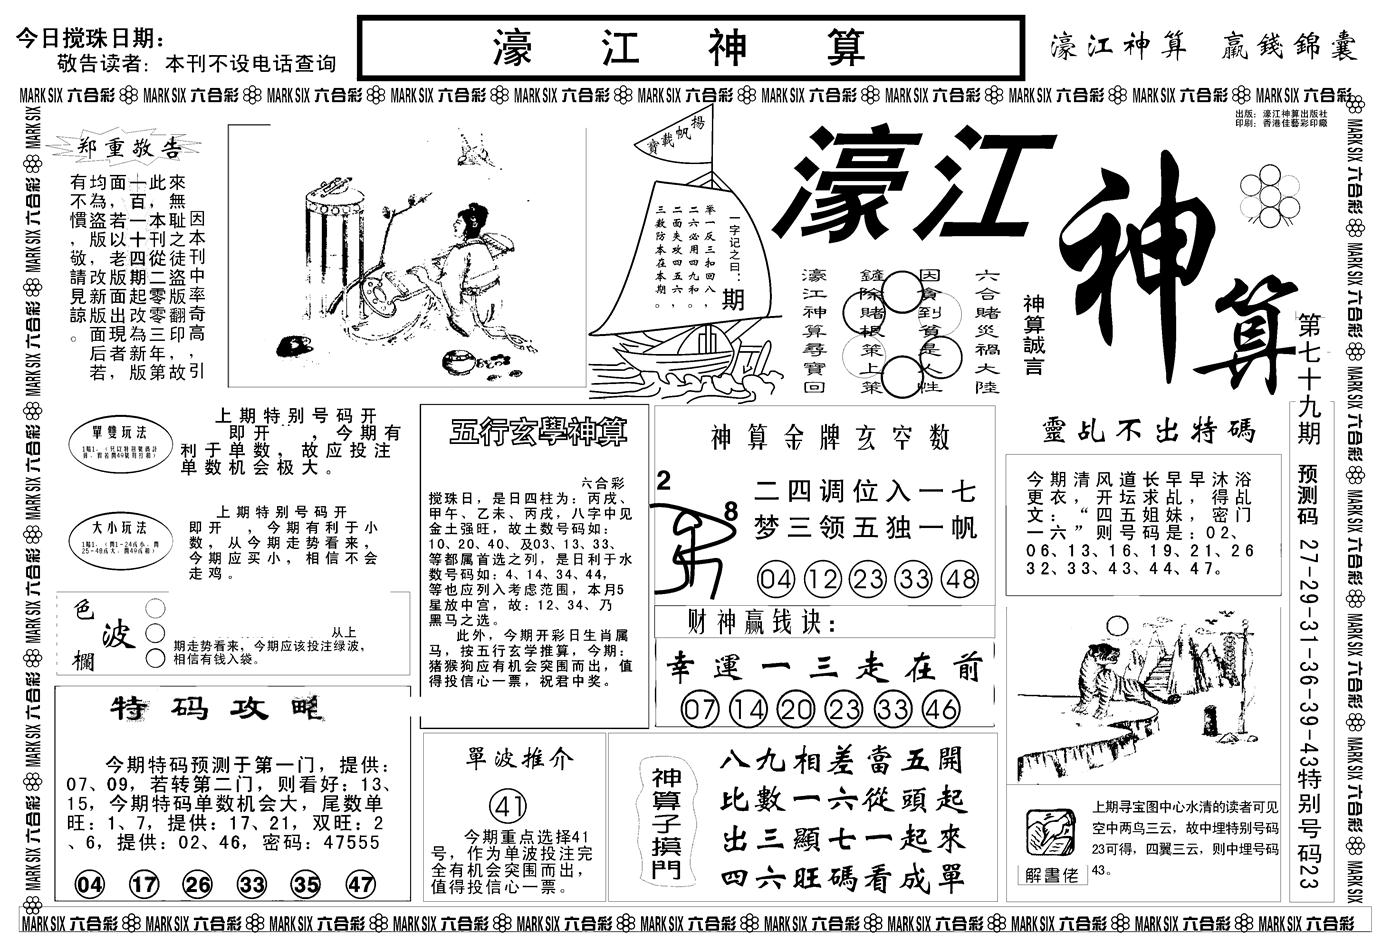 今日搅珠日期：
敬告读者：本刊不设电话查询
濠江神算
濠江神算 贏錢錦囊
MARK SIX 六合彩 MARK SIX 六合彩 MARK SIX 六合彩 MARK SIX 六合彩 MARK SIX 六合彩 MARK SIX 六合彩 MARK SIX 六合彩 MARK SIX 六合彩 MARK SIX 六合彩 MARK SIX 六合彩 MARK SIX 六合彩
出版：濠江神算出版社
印刷：香港佳藝彩印廠
郑重敬告
因本刊中率奇高，引
來無耻之徒盜版翻印，故
此，本刊從二零零三年第
十百一十四期起改為新版，
面，若以老版面出現者
均為盜版，改新版面后若
有不慣，敬請見諒。
揚帆載寶
一字记之曰：期
举一反三和四八，
二六必用四九和。
二面夹攻四五六，
三数防本在本期。
濠江
神算
六合賭災禍大陸
因貪到貧是人性
鏟除賭根策上策
濠江神算尋寶回
神算誠言
第七十九期 预测码 27-29-31-36-39-43特别号码23
單雙玩法
上期特别号码开
即开 ，今期有
利于单数，故应投注
单数机会极大。
大小玩法
上期特别号码开
即开 ，今期有利于小
数，从今期走势看来，
今期应买小，相信不会
走鸡。
色波欄
从上
期走势看来，今期应该投注绿波，
相信有钱入袋。
特码攻略
今期特码预测于第一门，提供：
07、09，若转第二门，则看好：13、
15，今期特码单数机会大，尾数单
旺：1、7，提供：17、21，双旺：2
、6，提供：02、46，密码：47555
04 17 26 33 35 47
五行玄學神算
六合彩
搅珠日，是日四柱为：丙戌、
甲午、乙未、丙戌，八字中见
金土强旺，故土数号码如：
10、20、40、及03、13、33、
等都属首选之列，是日利于水
数号码如：4、14、34、44，
等也应列入考虑范围，本月5
星放中宫，故：12、34、乃
黑马之选。
此外，今期开彩日生肖属
马，按五行玄学推算，今期：
猪猴狗应有机会突围而出，值
得投信心一票，祝君中奖。
神算金牌玄空数
2
8
二四调位入一七
梦三领五独一帆
04 12 23 33 48
财神赢钱诀：
幸運一三走在前
07 14 20 23 33 46
靈乩不出特碼
今期清风道长早早沐浴
更衣，开坛求乩，得乩
文：“四五姐妹，密门
一六”则号码是：02、
06、13、16、19、21、26
32、33、43、44、47。
單波推介
41
今期重点选择41
号，作为单波投注完
全有机会突围而出，
值得投信心一票。
神算子摸門
八九相差當五開
比數一六從頭起
出三顯七一起來
四六旺碼看成單
解書佬
上期寻宝图中心水清的读者可见
空中两鸟三云，故中埋特别号码
23可得，四翼三云，则中埋号码
43。
MARK SIX 六合彩 MARK SIX 六合彩 MARK SIX 六合彩 MARK SIX 六合彩 MARK SIX 六合彩 MARK SIX 六合彩 MARK SIX 六合彩 MARK SIX 六合彩 MARK SIX 六合彩 MARK SIX 六合彩 MARK SIX 六合彩